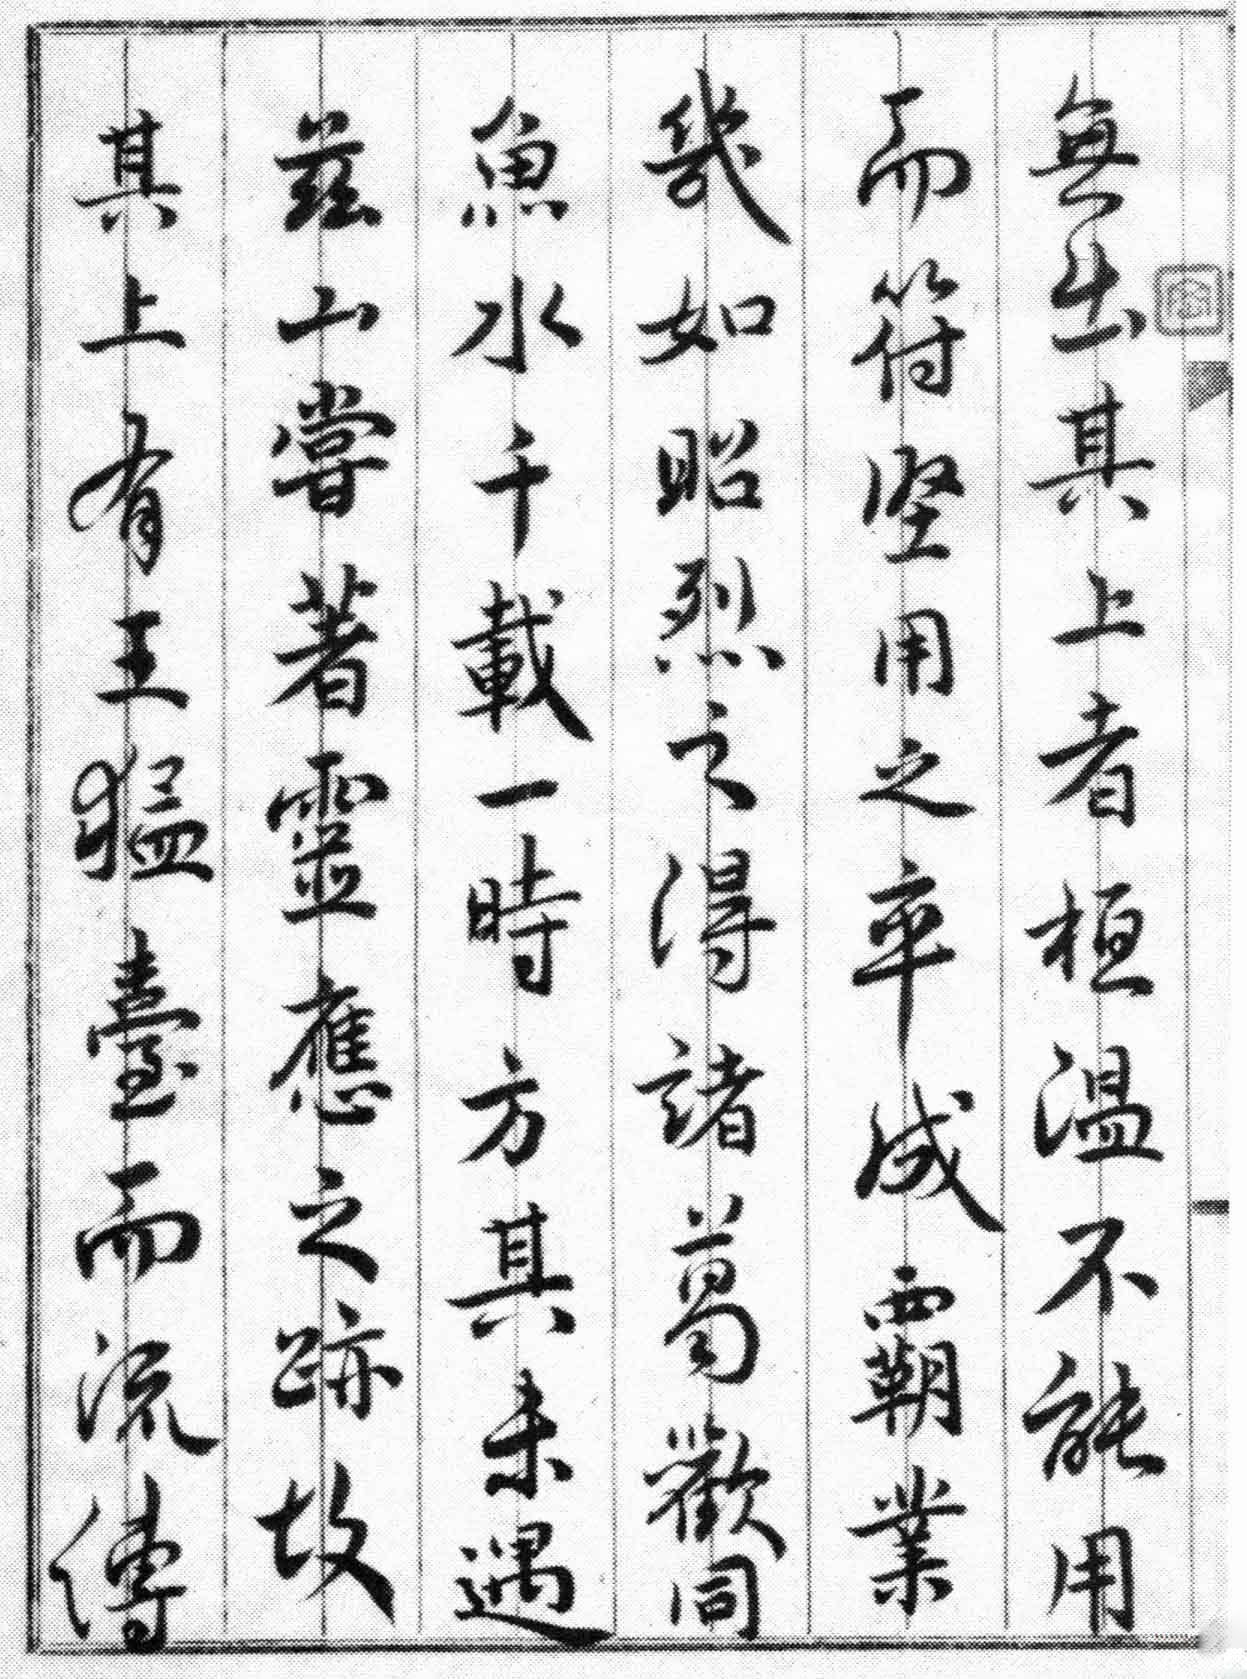 無出其上者桓溫不能用
而符堅用之卒成霸業
幾如昭烈之得諸葛歡同
魚水千載一時方其未遇
茲山嘗著靈應之跡故
其上有王猛臺而流傳